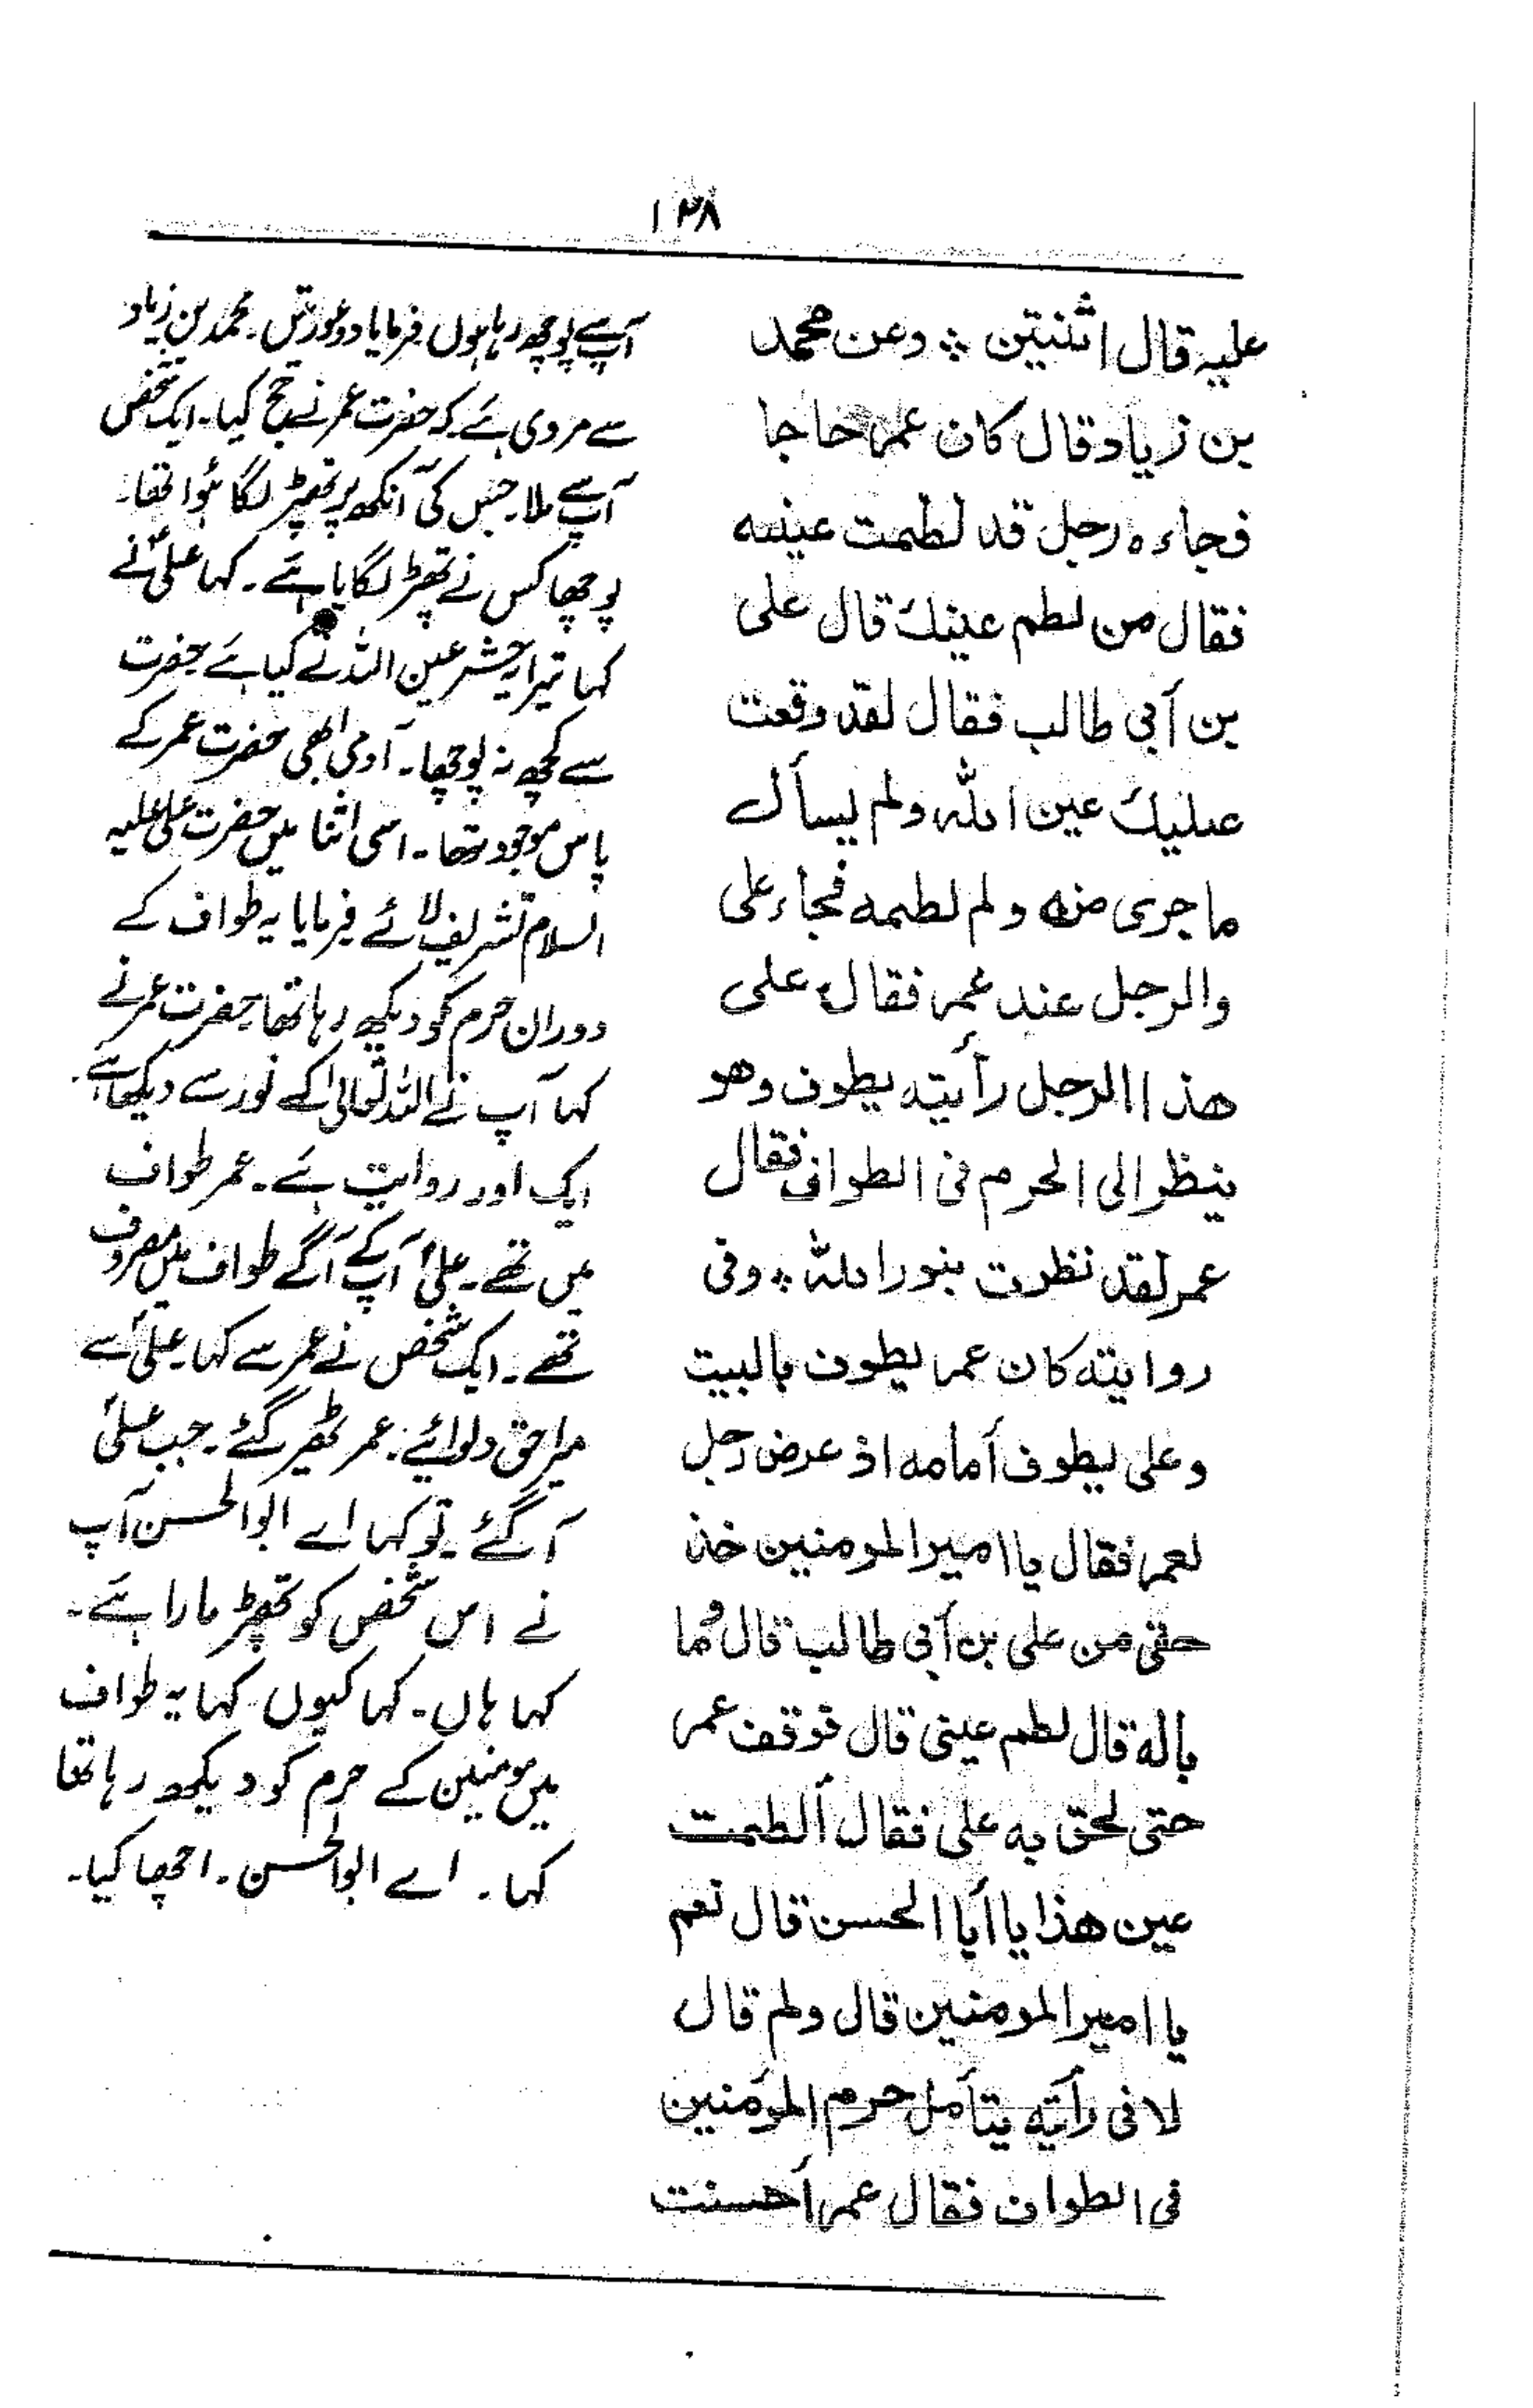 ١٣٨
علیہ قال اثنتین ٭ وعن محمد
بن زیاد قال کان عمر حاجا
فجاءہ رجل قد لطمت عینہ
فقال من لطم عینك قال علی
بن أبی طالب فقال لقد وقعت
علیك عین اللہ ولم یسأل
ما جری منہ ولم لطمہ فجاء علی
والرجل عند عمر فقال علی
ھذا الرجل رأیتہ یطوف وھو
ینظر الی الحرم فی الطواف فقال
عمر لقد نظرت بنور اللہ ٭ وفی
روایتہ کان عمر یطوف بالبیت
وعلی یطوف أمامہ اذ عرض رجل
لعمر فقال یا امیر المومنین خذ
حقی من علی بن أبی طالب قال وما
بالہ قال لطم عینی قال فوقف عمر
حتی لحق بہ علی فقال ألطمت
عین ھذا یا أبا الحسن قال نعم
یا امیر المومنین قال ولم قال
لانی رأیتہ یتأمل حرم المؤمنین
فی الطواف فقال عمر أحسنت
آپ سے پوچھ رہا ہوں فرمایا دو عورتیں۔ محمد بن زیاد
سے مروی ہے کہ حضرت عمر نے حج کیا۔ ایک شخص
آپ سے ملا۔ جس کی آنکھ پر تھپڑ لگا ہؤا تھا۔
پوچھا کس نے تھپڑ لگایا ہے۔ کہا علیؑ نے
کہا تیرا یہ حشر عین اللہ نے کیا ہے حضرت
سے کچھ نہ پوچھا۔ آدمی ابھی حضرت عمر کے
پاس موجود تھا۔ اسی اثنا میں حضرت علی علیہ
السلام تشریف لائے فرمایا یہ طواف کے
دوران حرم کو دیکھ رہا تھا۔ حضرت عمر نے
کہا آپ نے اللہ تعالیٰ کے نور سے دیکھا ہے۔
ایک اور روایت ہے۔ عمر طواف
میں تھے۔ علیؑ آپ کے آگے طواف میں مصروف
تھے۔ ایک شخص نے عمر سے کہا۔ علیؑ سے
میرا حق دلوائیے۔ عمر ٹھیر گئے۔ جب علیؑ
آ گئے۔ تو کہا اے ابوالحسن آپ
نے اس شخص کو تھپڑ مارا ہے۔
کہا ہاں۔ کہا کیوں کہا یہ طواف
میں مومنین کے حرم کو دیکھ رہا تھا
کہا۔ اے ابوالحسن۔ اچھا کیا۔